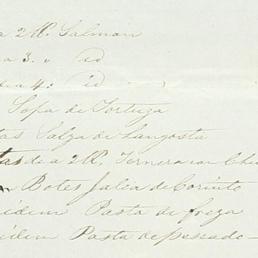 a 2 lb. Salmon
a 3. " id
de a 4: id
Sopa de Tortuga
tas Salza de Langosta
tas de a 2 lb. Ternera con
Botes Jalea de Corinto
idem Pasta de freza
idem Pasta de pescado